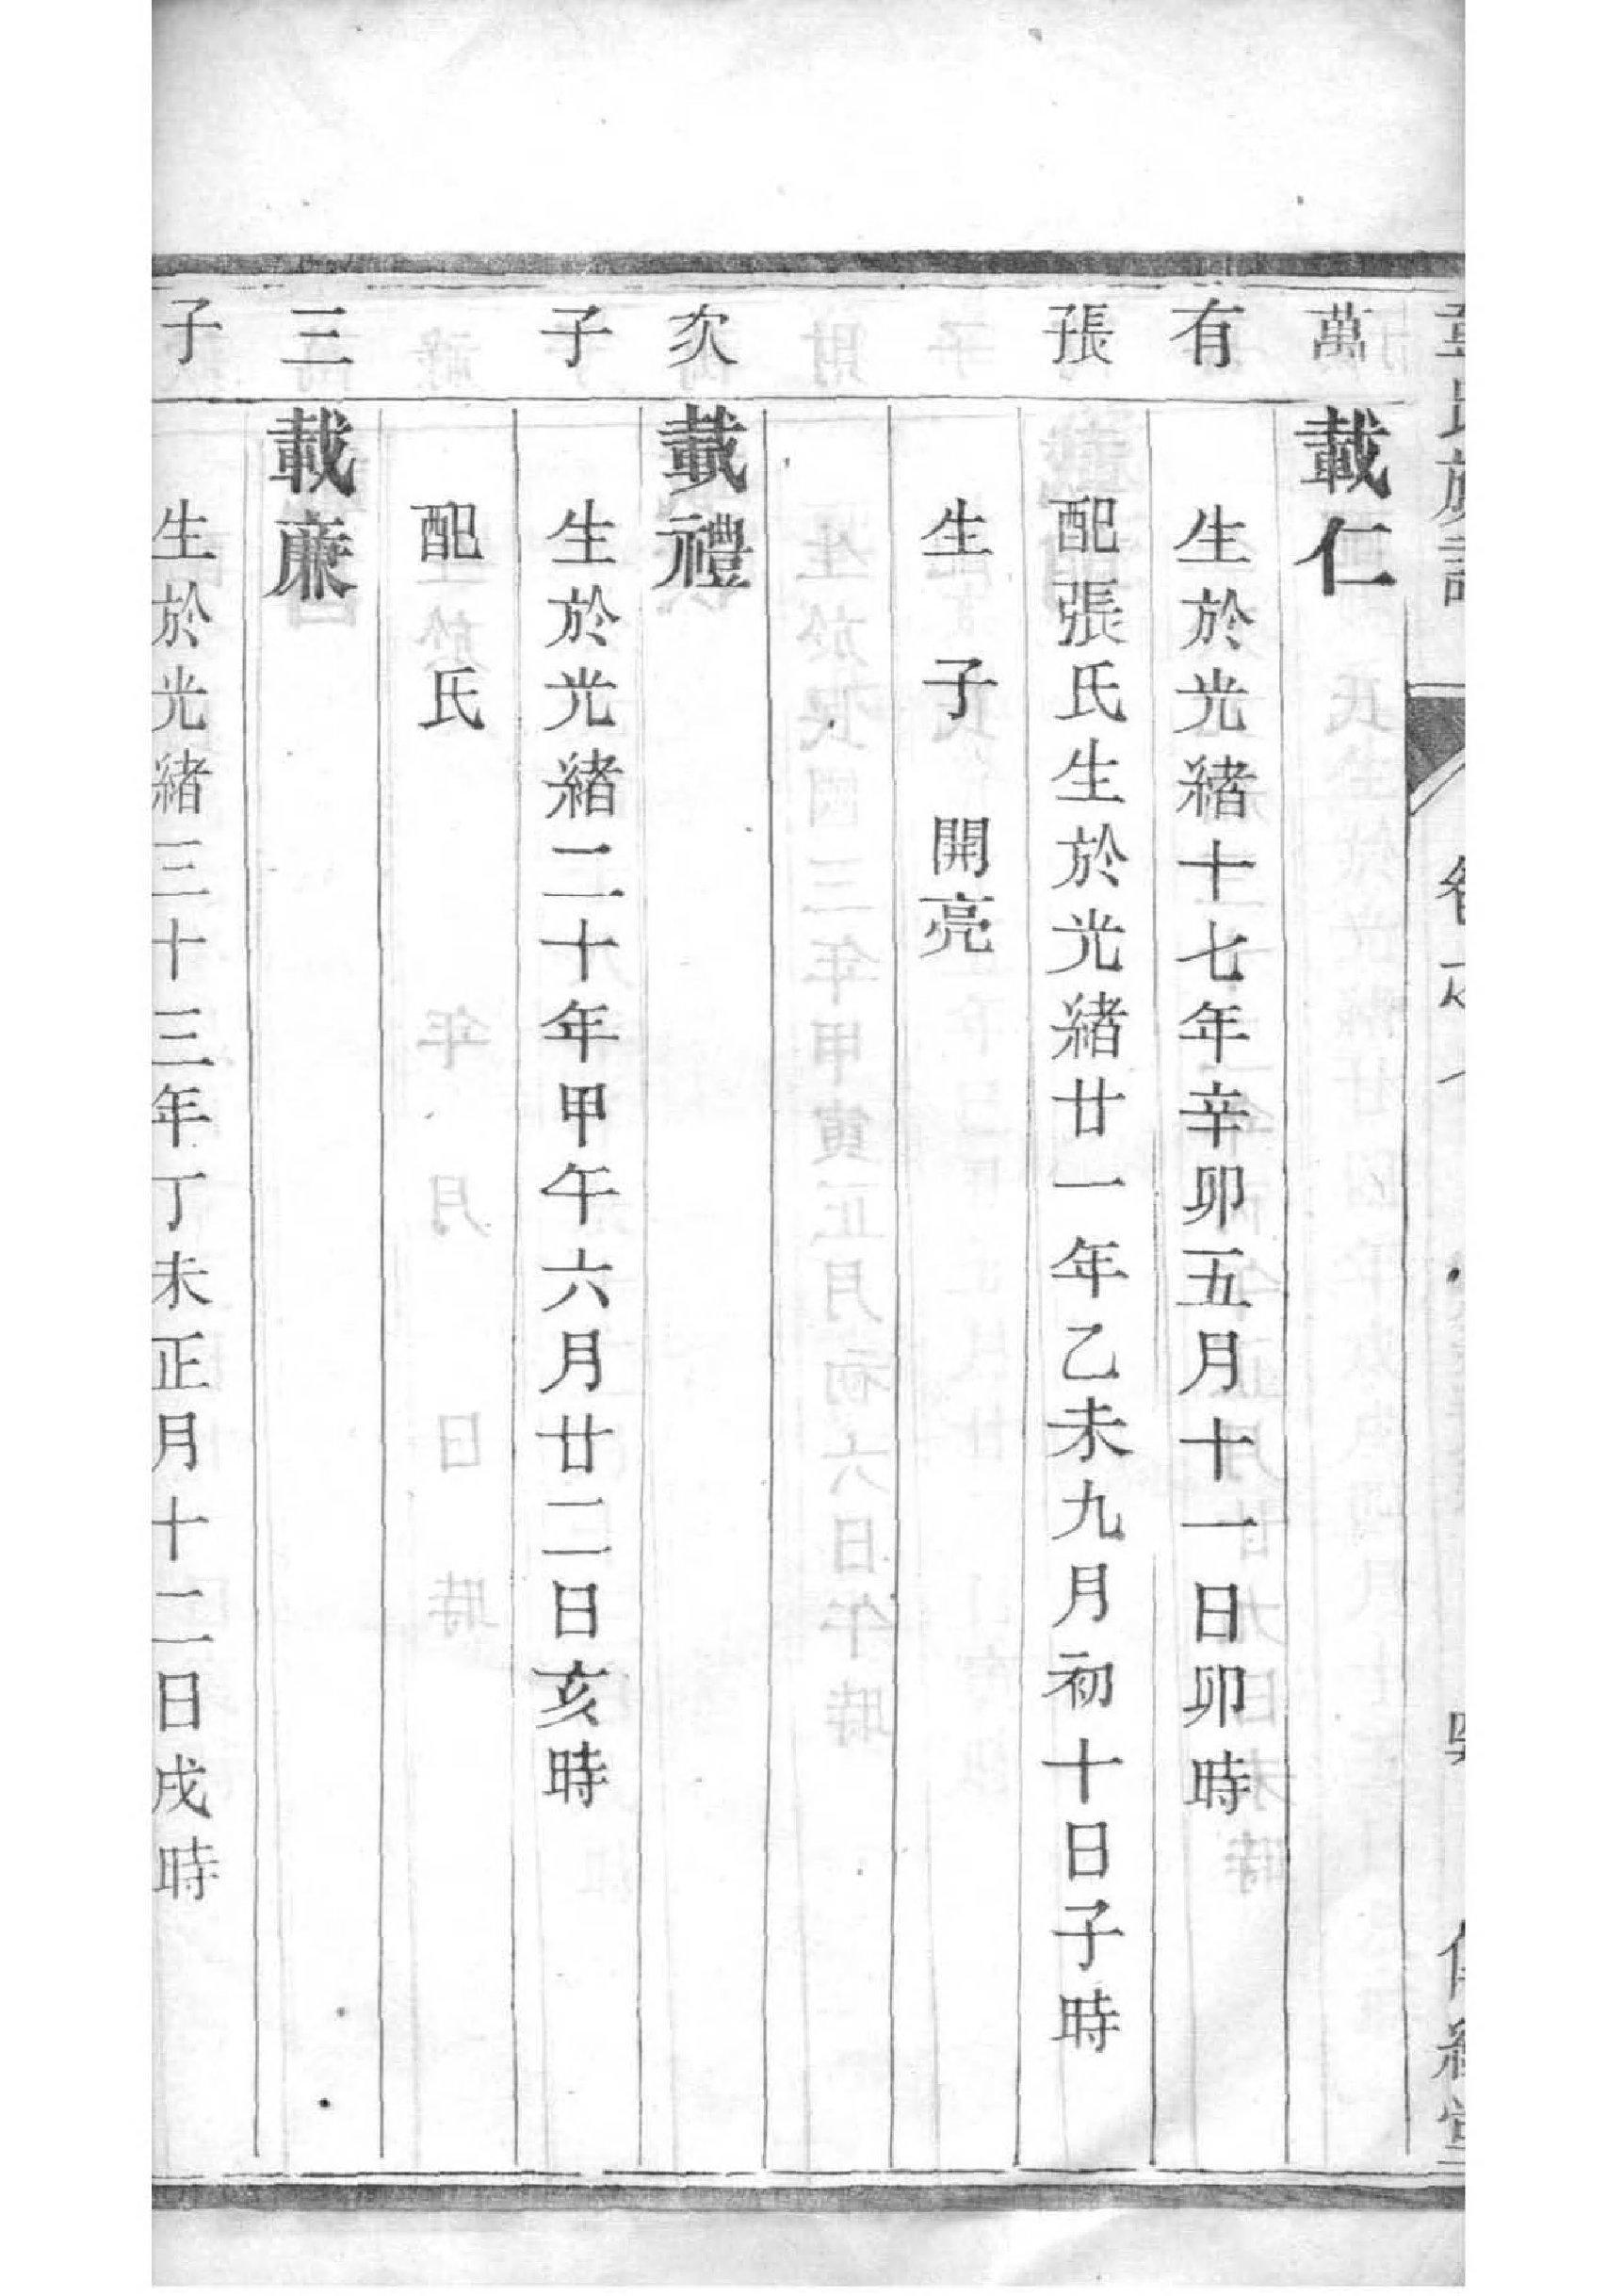 萬 載仁
有 生於光緒十七年辛卯五月十一日卯時
張 配張氏生於光緒廿一年乙未九月初十日子時
生 子 開亮
次 載禮
子 生於光緒二十年甲午六月廿二日亥時
配 氏
三 載廉
子 生於光緒三十三年丁未正月十二日戌時